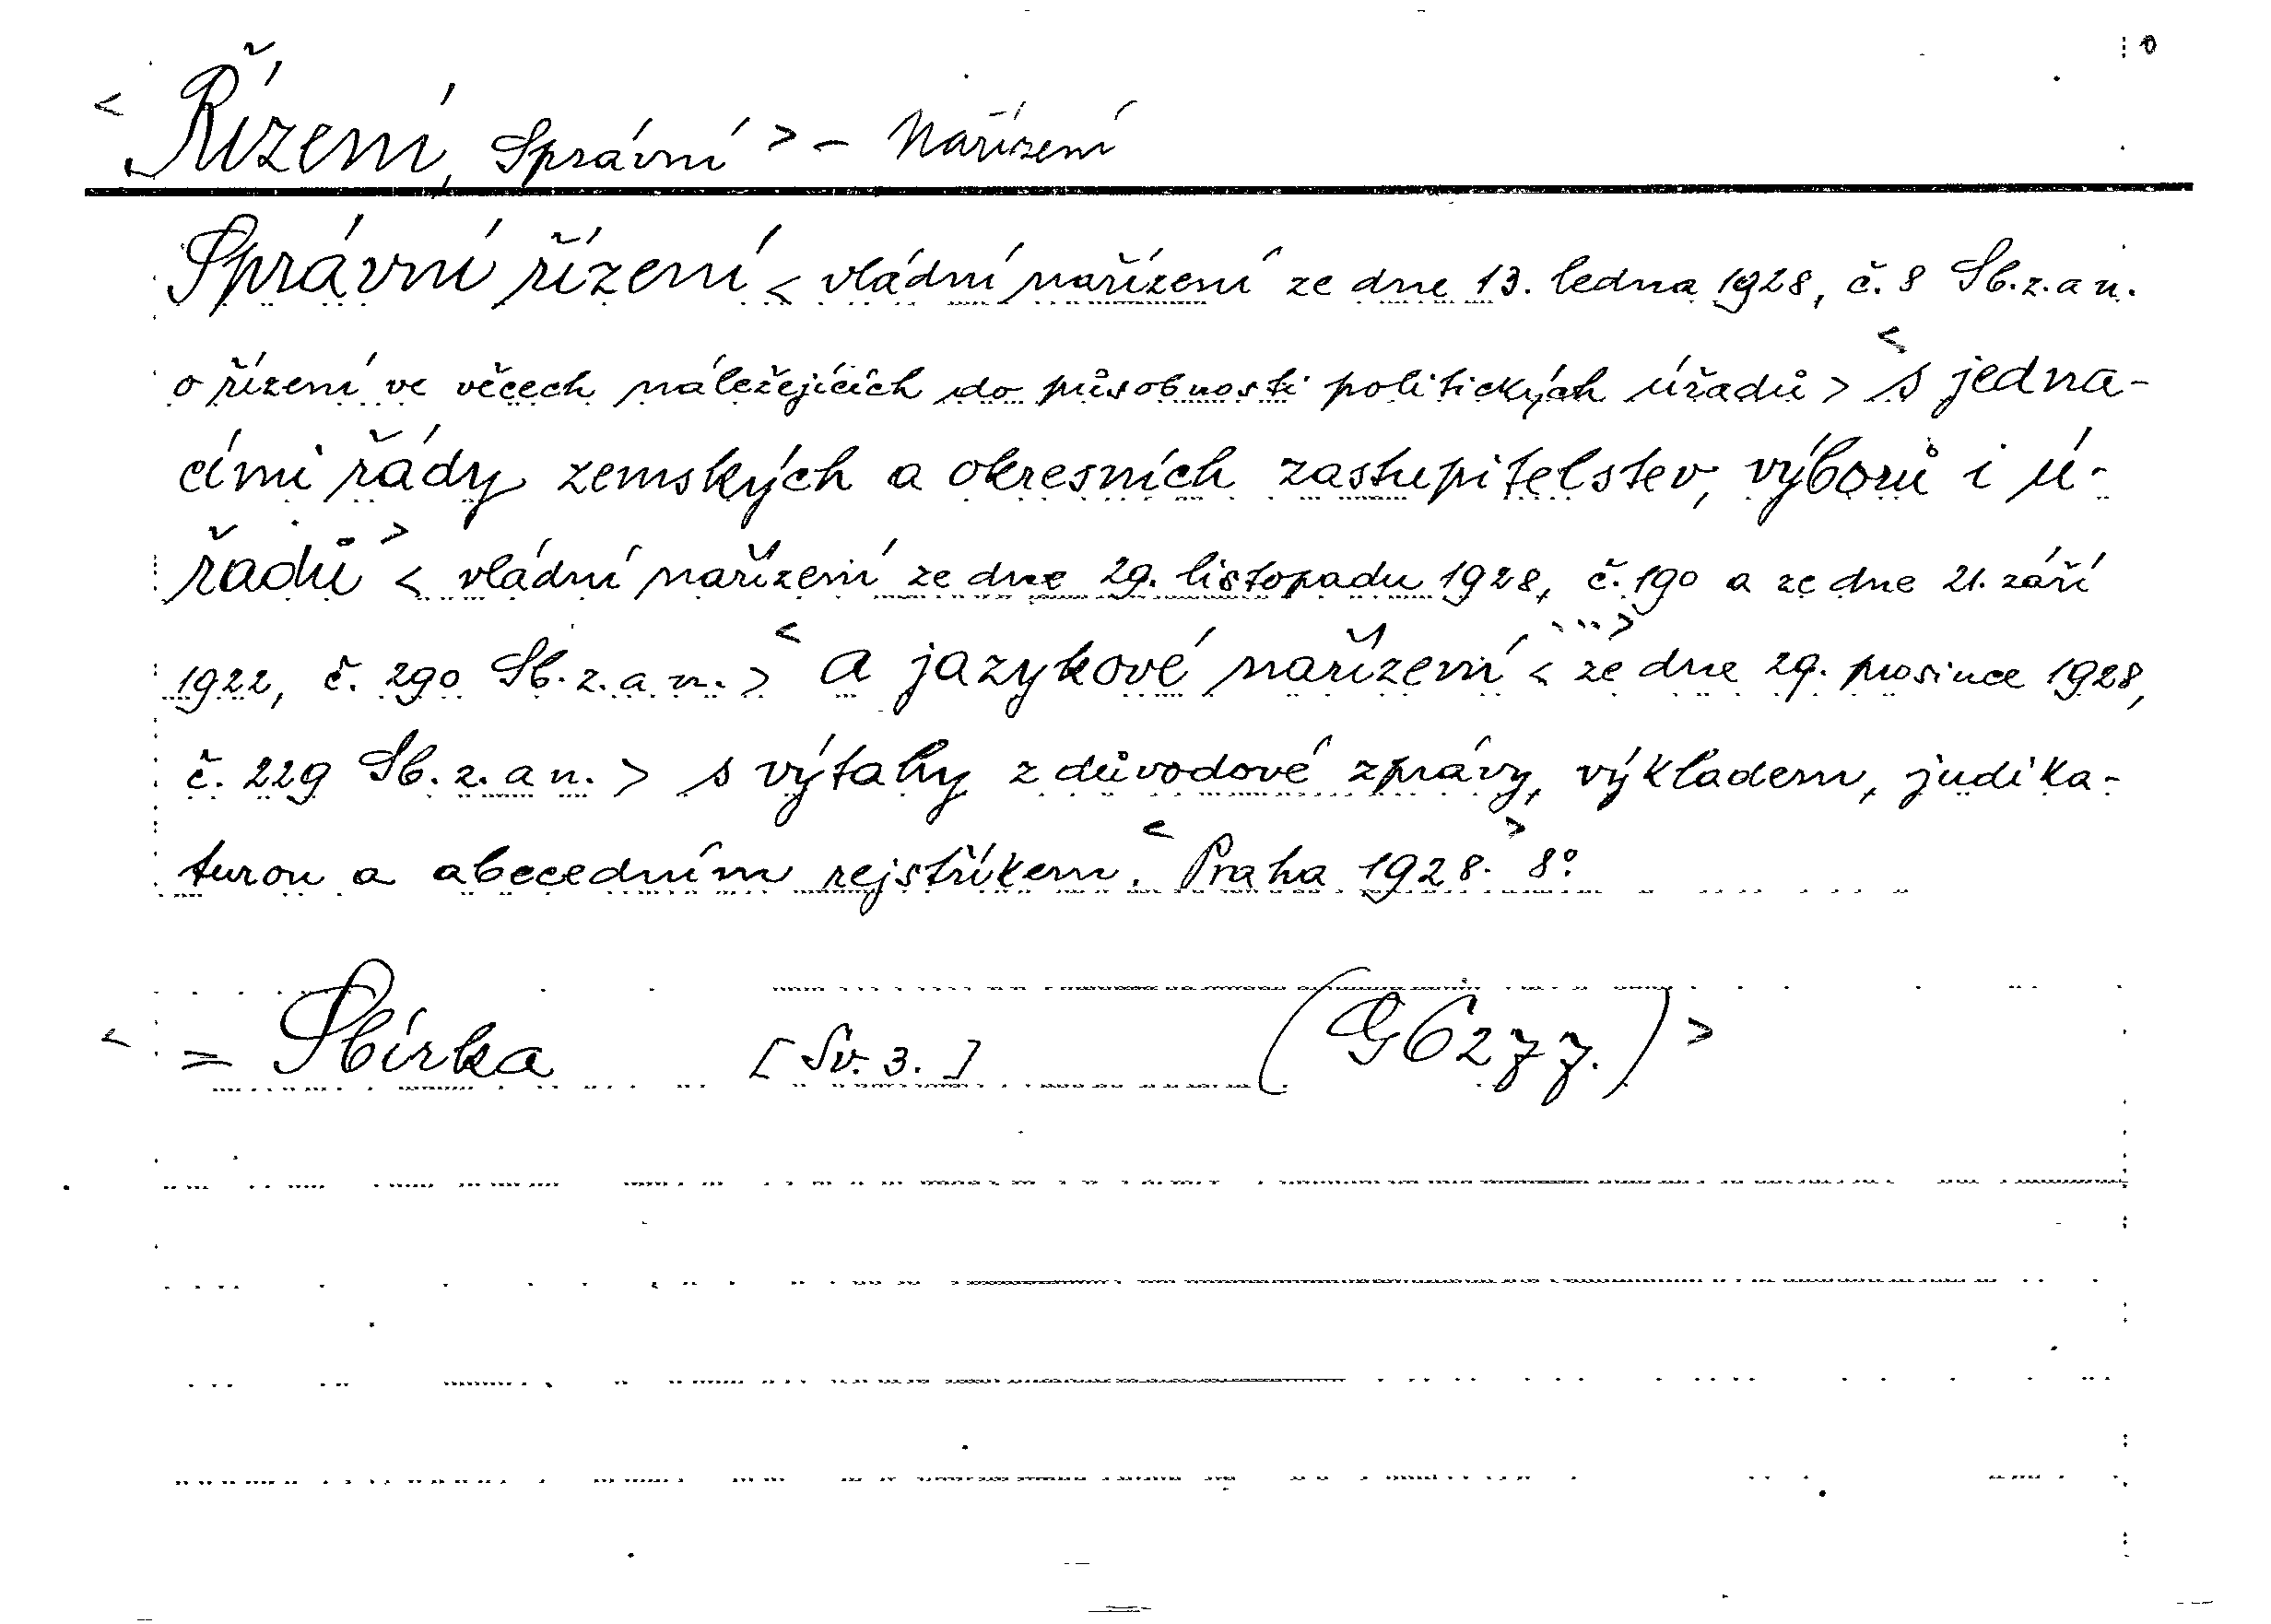 < Řízení, Správní > – Nařízení
Správní řízení < vládní nařízení ze dne 13. ledna 1928, č. 8 Sb. z. a n.
o řízení ve věcech náležejících do působnosti politických úřadů > < s jedna-
cími řády zemských a okresních zastupitelstev, výborů i ú-
řadů > < vládní nařízení ze dne 29. listopadu 1928, č. 190 a ze dne 21. září
1922, č. 290 Sb. z. a n. > < a jazykové nařízení > < ze dne 29. prosince 1928,
č. 229 Sb. z. a n. > s výtahy z důvodové zprávy, výkladem, judika-
turou a abecedním rejstříkem. < Praha 1928. > 8°.
< = Sbírka [Sv. 3.] (G 6277.) >